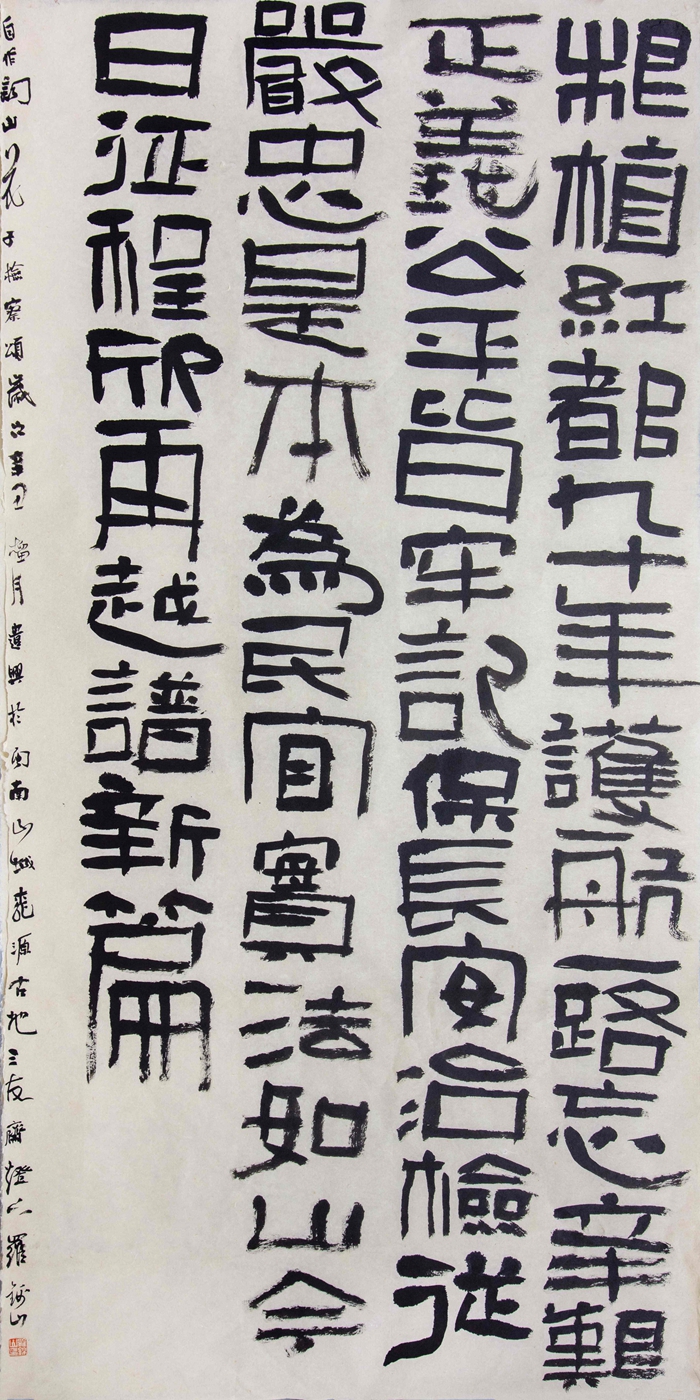 根植紅都九十年護航一路忘辛艱
正義公平皆牢記保長安治檢從
嚴忠是本為民宜實法如山今
日征程欣再越譜新篇
自作詞山花子檢察頌歲次辛丑榴月遣興於閩南山城龍源古地三友齋燈下羅山